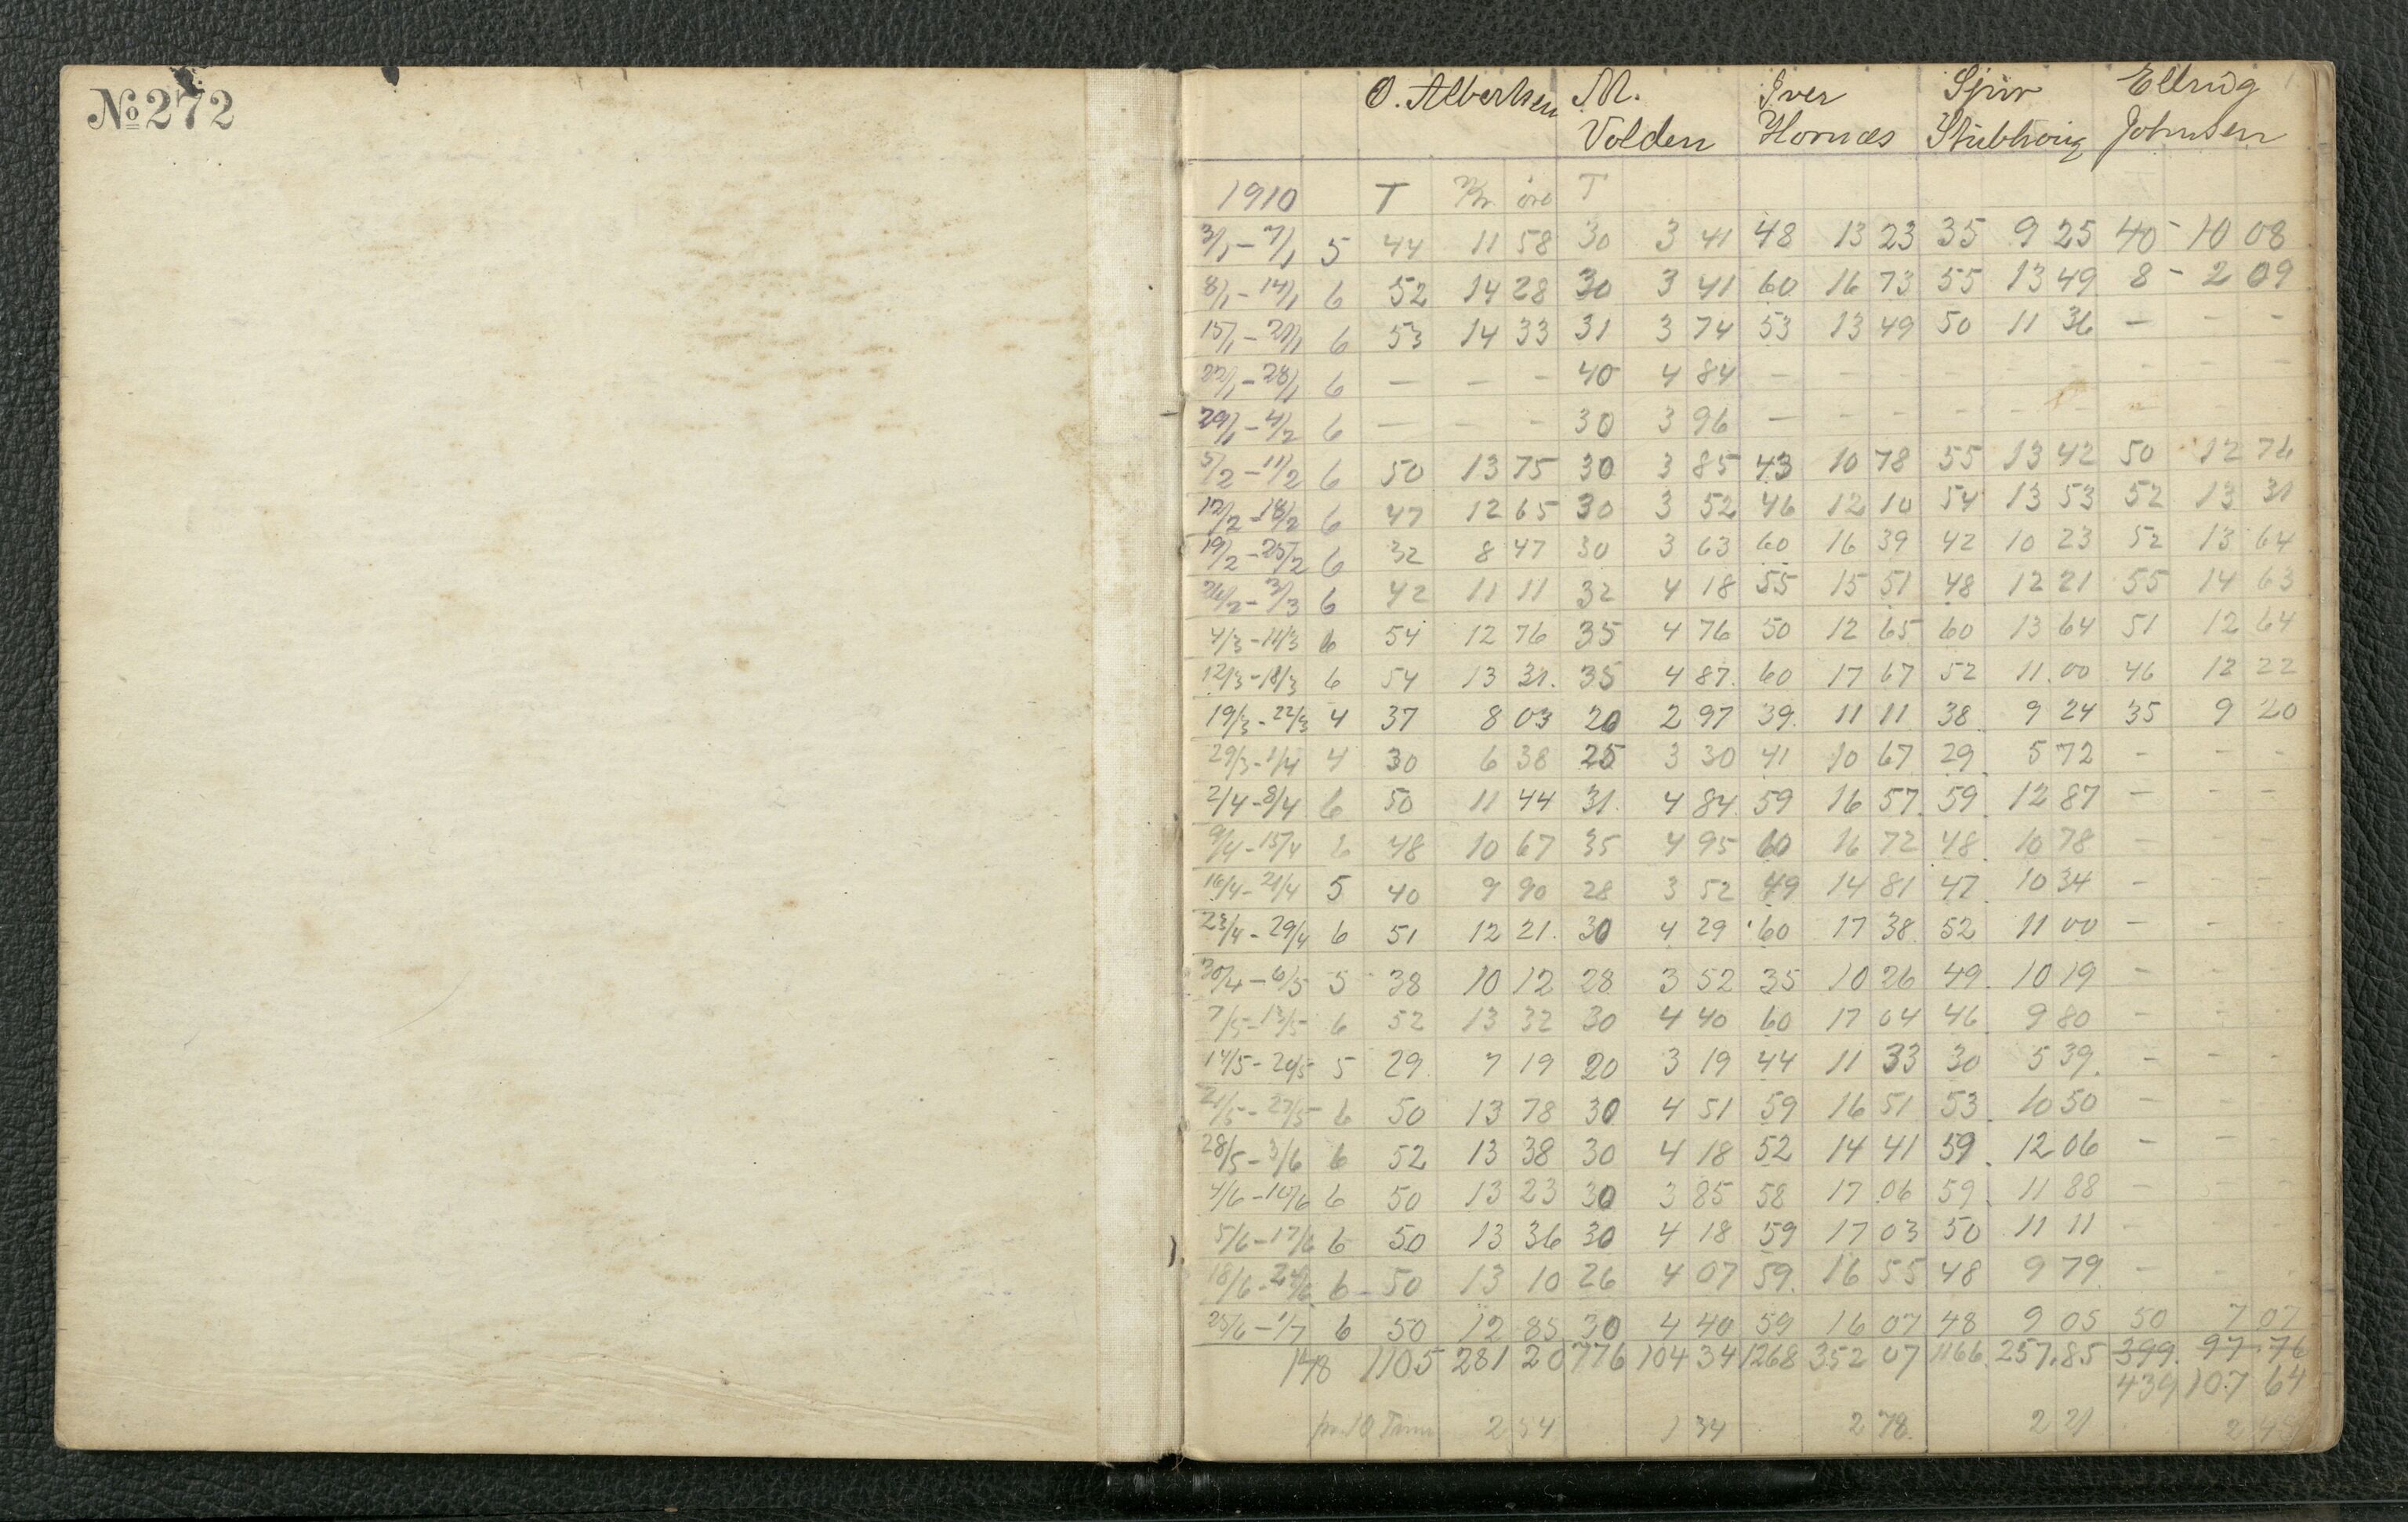 No 272
O. Albertsen M. Iver Sjur Ellrig
Volden Hornæs Stubhoug Johnsen
1910 T Kr. øre T
3/1 - 7/1 5 44 11 58 30 3 41 48 13 23 35 9 25 40 - 10 08
8/1 - 14/1 6 52 14 28 30 3 41 60 16 73 55 13 49 8 - 2 09
15/1 - 21/1 6 53 14 33 31 3 74 53 13 49 50 11 36 - - -
22/1 - 28/1 6 - - - 40 4 84 - - - - - - - - -
29/1 - 4/2 6 - - - 30 3 96 - - - - - - - - -
5/2 - 11/2 6 50 13 75 30 3 85 43 10 78 55 13 42 50 12 76
12/2 - 18/2 6 47 12 65 30 3 52 46 12 10 54 13 53 52 13 31
19/2 - 25/2 6 32 8 47 30 3 63 60 16 39 42 10 23 52 13 64
26/2 - 3/3 6 42 11 11 32 4 18 55 15 51 48 12 21 55 14 63
4/3 - 11/3 6 54 12 76 35 4 76 50 12 65 60 13 64 51 12 64
12/3 - 18/3 6 54 13 31. 35 4 87. 60 17 67 52 11.00 46 12 22
19/3 - 22/3 4 37 8 03 20 2 97 39. 11 11 38 9 24 35 9 20
29/3 - 1/4 4 30 6 38 25 3 30 41 10 67 29 5 72 - - -
2/4 - 8/4 6 50 11 44 31. 4 84 59 16 57 59 12 87 - - -
9/4 - 15/4 6 48 10 67 35 4 95 60 16 72 48 10 78 - - -
16/4 - 21/4 5 40 9 90 28 3 52 49 14 81 47 10 34 - - -
23/4 - 29/4 6 51 12 21. 30 4 29 60 17 38 52 11 00 - - -
30/4 - 6/5 5 38 10 12 28 3 52 35 10 26 49. 10 19 - - -
7/5 - 13/5 6 52 13 32 30 4 40 60 17 04 46 9 80 - - -
14/5 - 20/5 5 29. 7 19 20 3 19 44 11 33 30 5 39. - - -
21/5 - 27/5 6 50 13 78 30 4 51 59 16 51 53. 10 50 - - -
28/5 - 3/6 6 52 13 38 30 4 18 52 14 41 59. 12 06 - - -
4/6 - 10/6 6 50 13 23 30 3 85 58 17 06 59. 11 88 - - -
5/6 - 17/6 6 50 13 36 30 4 18 59 17 03 50 11 11 -
18/6 - 24/6 6 - 50 13 10 26 4 07 59. 16 55 48 9 79. -
25/6 - 1/7 6 50 12 85 30 4 40 59 16 07 48 9 05 50 7 07
148 1105 281 20 776 104 34 1268 352 07 1166 257,85 399. 97 76
439 107 64
pr. 10 Timer 2 54 1 34 2 78. 2 21 2 44